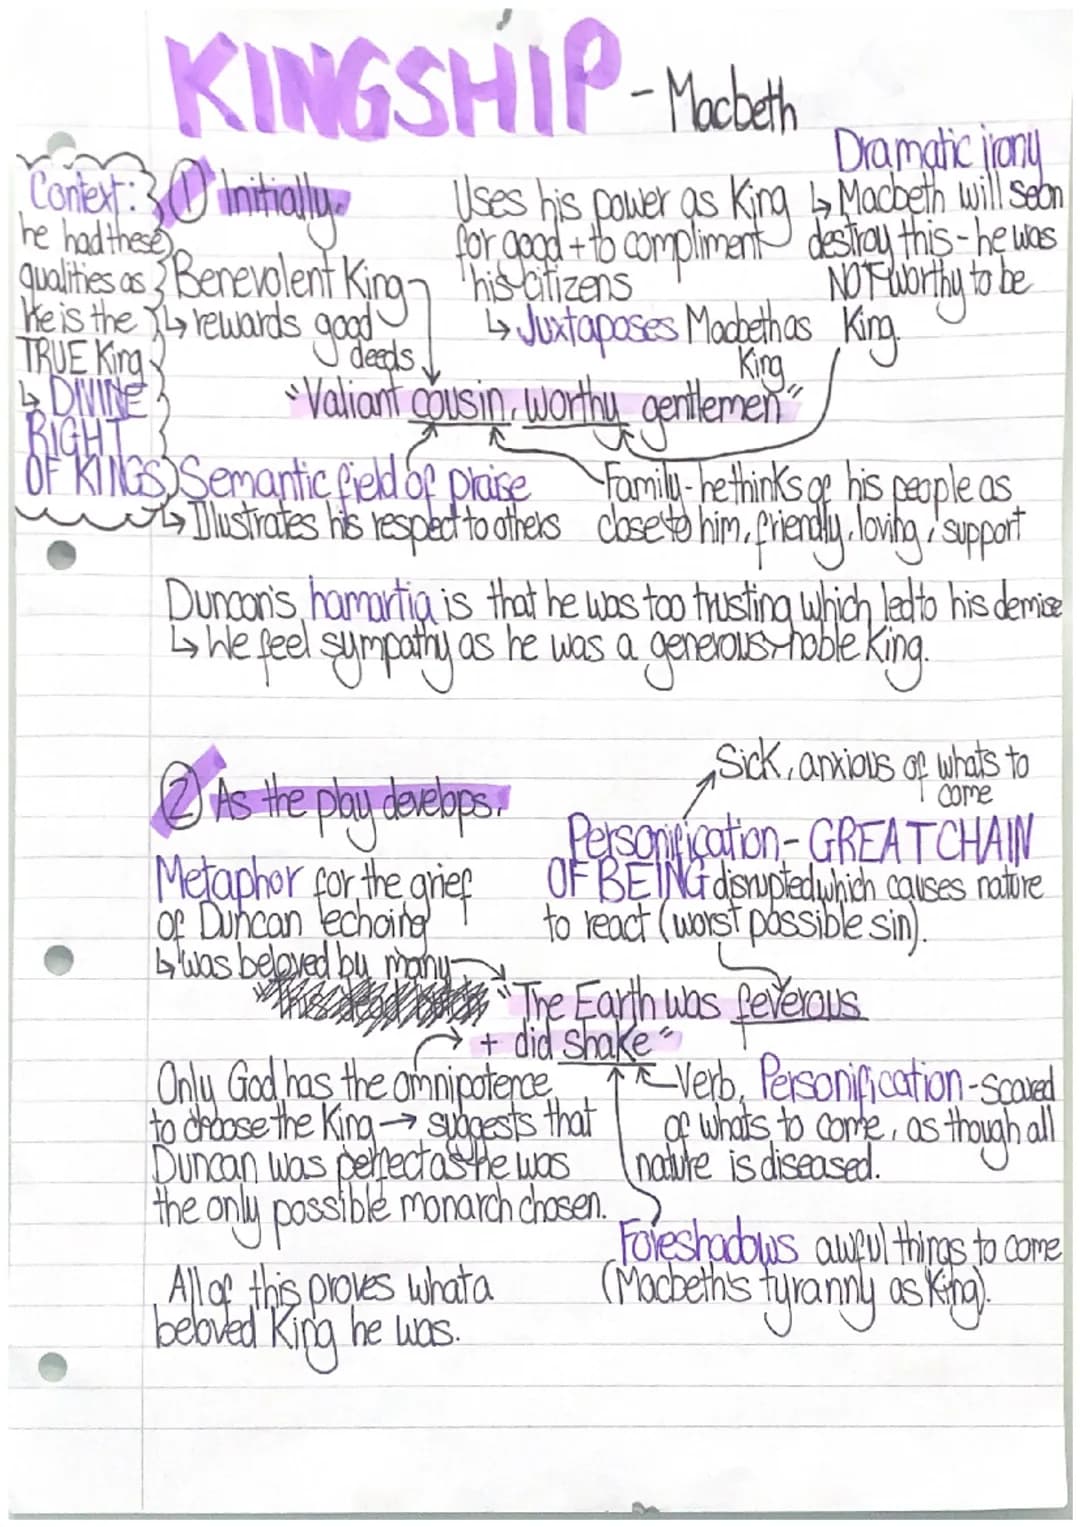 KINGSHIP - Macbeth
Context:
he had these
qualities as
He is the
TRUE King
↳ DIVINE
RIGHT
OF KINGS
① Initially.
Benevolent King
↳ rewards good
deeds
Uses his power as King
for good + to compliment
his citizens
↳ Juxtaposes Macbeth as
King
Dramatic irony
↳ Macbeth will soon
destroy this - he was
NOT worthy to be
King.
"Valiant cousin, worthy gentlemen"
Semantic field of praise
↳ Illustrates his respect to others
Family - he thinks of his people as
close to him, friendly, loving, support
Duncan's hamartia is that he was too trusting which led to his demise
↳ We feel sympathy as he was a generous + noble King.
② As the play develops.
Metaphor for the grief
of Duncan echoing
↳ was beloved by many
Sick, anxious of whats to
come
Personification - GREAT CHAIN
OF BEING disrupted which causes nature
to react (worst possible sin).
"The Earth was feverous
+ did shake"
Only God has the omnipotence
to choose the King → suggests that
Duncan was perfect as He was
the only possible monarch chosen.
Verb, Personification - scared
of whats to come, as though all
nature is diseased.
Foreshadows awful things to come
(Macbeth's tyranny as King).
All of this proves what a
beloved King he was.